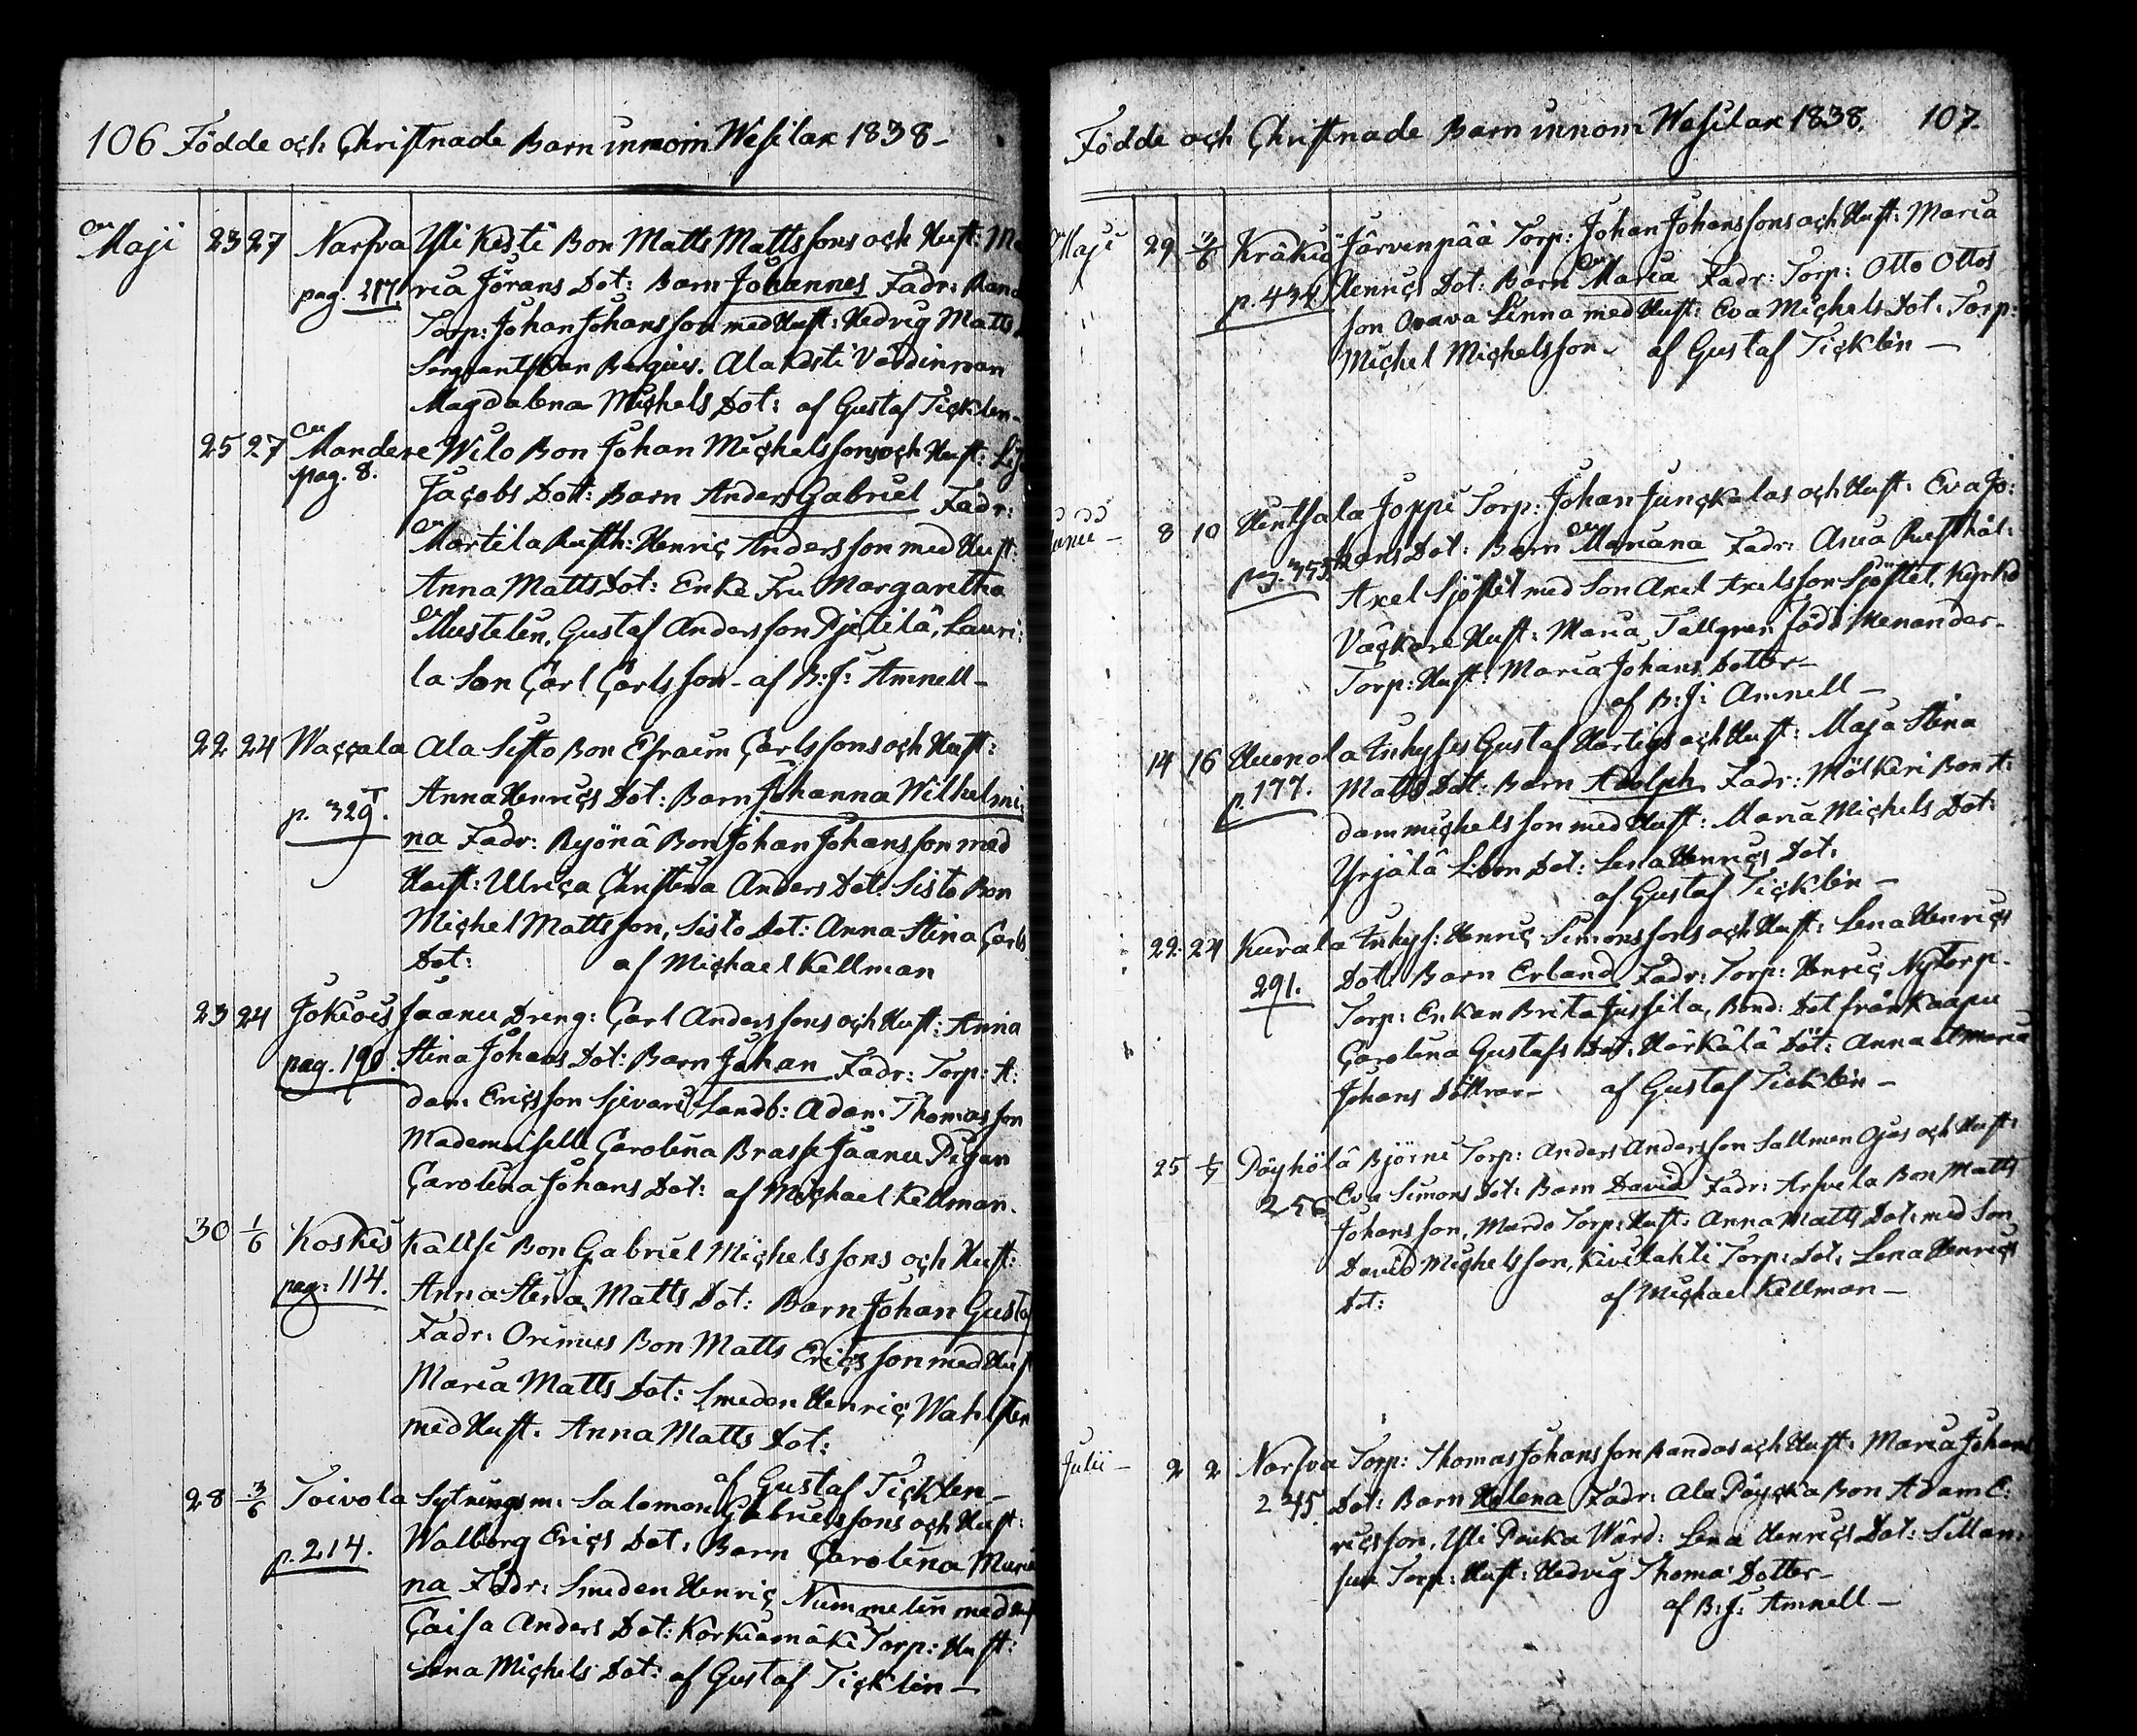 106 Födde och Christnade Barn innom Wesilax 1838-
Maji 23 27 Narfva Yli Kesti Bon Matts Mattssons och Hust: Ma
pag. 217. ria Jörans Dot: Barn Johannes Fadr: Randa
Torp: Johan Johansson med Hust: Hedvig Matts
Bergius. Ala Kesti Värdinnan
Magdalena Michels Dot: af Gustaf Ticklén-
25 27 Mandere Wilo Bon Johan Michelssons och Hust: Lisa
pag. 8. Jacobs Dot: Barn Anders Gabriel Fadr:
Martila Rusth: Henric Andersson med Hust:
Anna Matts Dot: Enke Fru Margaretha
Mustelin, Gustaf Andersson Pjetilä, Lauri-
la Son Carl Carlsson- af B: J: Amnell-
22 24 Waccala Ala Sisto Bon Efraim Carlssons och Hust:
p. 329. Anna Henrics Dot: Barn Johanna Wilhelmi-
na Fadr: Byönä Bon Johan Johansson med
Hust: Ulrica Christina Anders Dot: Sisto Bon
Michel Mattsson, Sisto Dot: Anna Stina Carls
Dot: af Michael Kellman
23 24 Jokiois Jaanu Dreng: Carl Anderssons och Hust: Anna
pag. 190. Stina Johans Dot: Barn Johan Fadr: Torp: A:
dam Ericsson Sjivari, Landb: Adam Thomasson
Mademoiselle Carolina Brasse Jaanu Pigan
Carolina Johans Dot: af Michael Kellman.
30 1/6 Koskis Källsi Bon Gabriel Michelssons och Hust:
pag: 114. Anna Stina Matts Dot: Barn Johan Gustaf
Fadr: Orimus Bon Matts Ericsson med Hust
Maria Matts Dot: Smeden Henric Wahlsten
med Hust: Anna Matts Dot:
af Gustaf Ticklén-
28 3/6 Toivola Sytningsm: Salomon Gabrielssons och Hust:
p. 214. Walborg Erics Dot: Barn Carolina Maria
na Fadr: Smeden Henric Nummelin med Hust
Caisa Anders Dot: Korkiamäki Torp: Hust:
Lena Michels Dot: af Gustaf Ticklén-
Födde och Christnade Barn innom Wesilax 1838. 107.
Maji 29 3/6 Kräkiö Järvenpää Torp: Johan Johanssons och Hust: Maria
p. 434 Henrics Dot: Barn Maria Fadr: Torp: Otto Ottos
son Orava Linna med Hust: Eva Michels Dot: Torp:
Michel Michelsson- af Gustaf Ticklén-
Junii- 8 10 Hinsala Joppi Torp: Johan Junckalas och Hust: Eva Jo:
pag. 353. hans Dot: Barn Mariana Fadr: Rusthål:
Axel Sjöstet med Son Axel Axelsson Sjöstet, Kyrko
Väckare Hust: Maria Tallgren född Menander-
Torp: Hust: Maria Johans Dotter-
af B: J: Amnell-
14 16 Huonola Inhyses Gustaf Hartigs och Hust: Maja Stina
p. 177. Matts Dot: Barn Adolph Fadr: Mölkeri Bon A:
dam Michelsson med Hust: Maria Michels Dot:
Yrjälä Dot: Lena Henrics Dot:
af Gustaf Ticklén-
22 24 Kurala Inhys: Henric Simonssons och Hust: Lena Henrics
291. Dot: Barn Erland Fadr: Torp: Henric Nytorp-
Torp: Enkan Brita Jussila, Bond: Dot från Kaapu
Carolina Gustafs Dot: Härkälä Dot: Anna Maria
Johans Döttrar- af Gustaf Ticklén-
25 1/7 Pöyhölä Björni Torp: Anders Andersson Sallmen Ojas och Hust:
256 Eva Simons Dot: Barn David Fadr: Arfvela Bon Matts
Johansson, Mardo Torp: Hust: Anna Matts Dot: med Son
David Michelsson, Kivilahti Torp: Dot: Lena Henrics
Dot: af Michael Kellman-
Julii- 2 2 Narfva Torp: Thomas Johansson Randas och Hust: Maria Johans
245. Dot: Barn Helena Fadr: Ala Pöyckä Bon Adam E:
ricsson, Yli Värd: Lena Henrics Dot: Sillan:
suu Torp: Hust: Hedvig Thoma Dotter-
af B: J: Amnell-